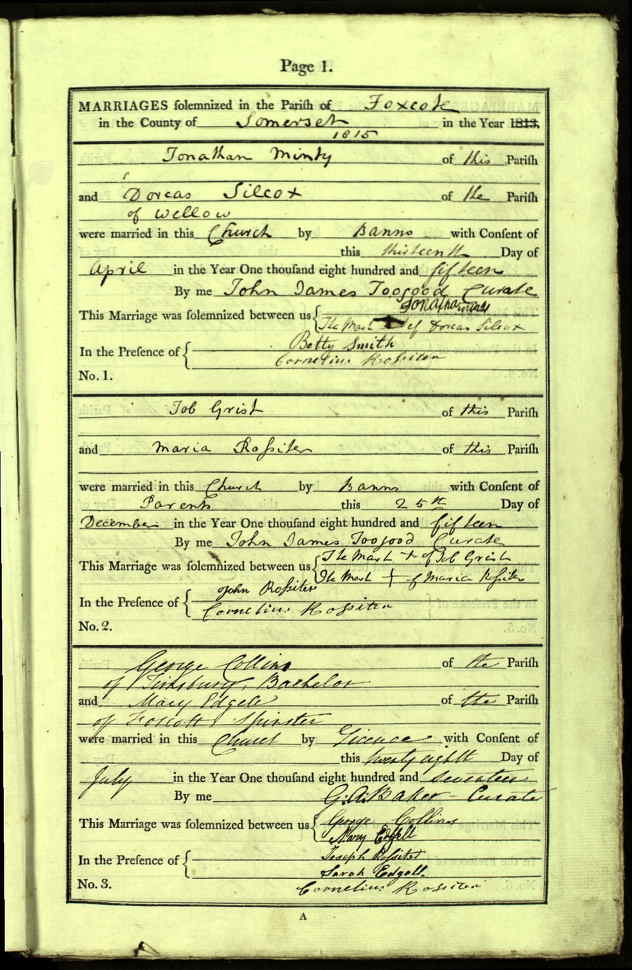 Page 1.
MARRIAGES solemnized in the Parish of Foxcote
in the County of Somerset in the Year 1813,
1815
Jonathan Minty of this Parish
and Dorcas Silcox of the Parish
of Wellow
were married in this Church by Banns with Consent of
this thirteenth Day of
April in the Year One thousand eight hundred and fifteen
By me John James Toogood Curate
This Marriage was solemnized between us Jonathan
The Mark of Dorcas Silcox
In the Presence of Betty Smith
Cornelius Rossiter
No. 1.
Job Grist of this Parish
and Maria Rossiter of this Parish
were married in this Church by Banns with Consent of
Parents this 25th Day of
December in the Year One thousand eight hundred and fifteen
By me John James Toogood Curate
This Marriage was solemnized between us The Mark + of Job Grist
The Mark + of Maria Rossiter
In the Presence of John Rossiter
Cornelius Rossiter
No. 2.
George Collins of the Parish
of Timsbury, Bachelor
and Mary Edgell of the Parish
of Foxcott Spinster
were married in this Church by Licence with Consent of
this twenty eighth Day of
July in the Year One thousand eight hundred and seventeen
By me G. A. Baker - Curate
This Marriage was solemnized between us George Collins
Mary Edgell
In the Presence of Joseph Rossiter
Sarah Edgell
No. 3. Cornelius Rossiter
A